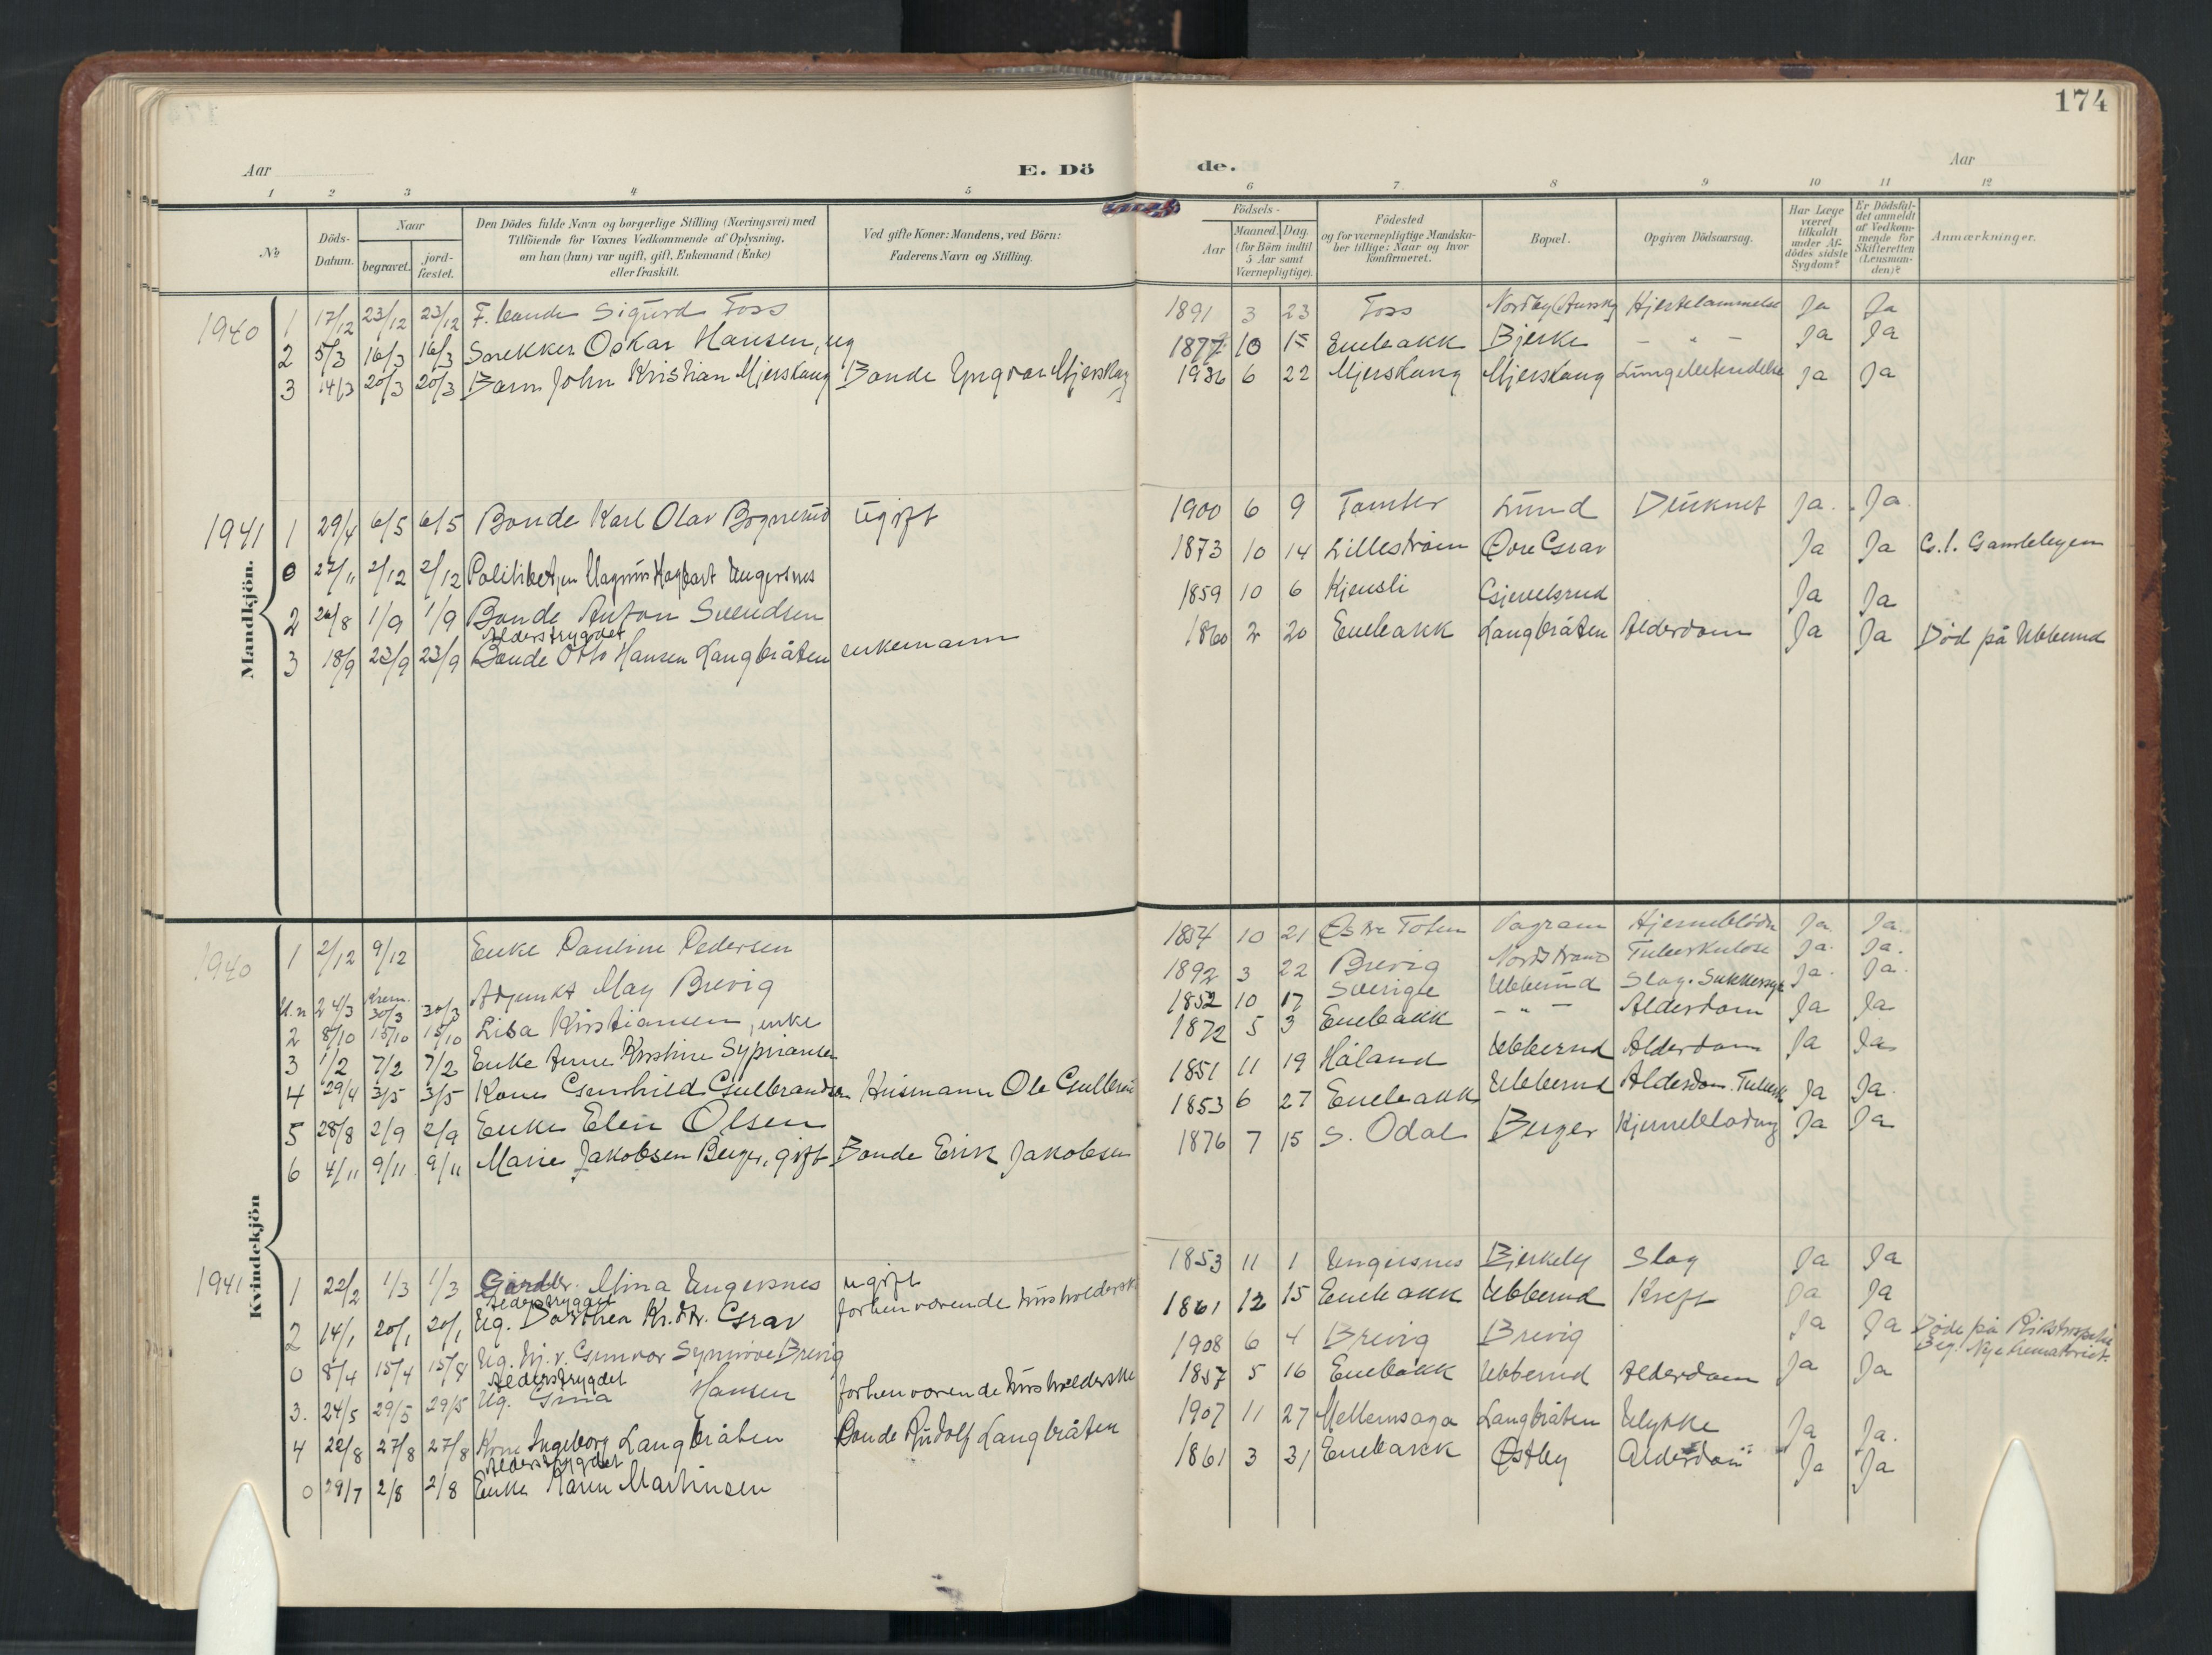 174
Aar
E. Dö
de.
Aar
1 2 3 4 5 6 7 8 9 10 11 12
№
Döds-Datum.
Naar
begravet.
jord-fæstet.
Den Dödes fulde Navn og borgerlige Stilling (Næringsvei) med
Tilföiende for Voxnes Vedkommende af Oplysning,
om han (hun) var ugift, gift, Enkemand (Enke)
eller fraskilt.
Ved gifte Koner: Mandens, ved Börn:
Faderens Navn og Stilling.
Födsels-
Aar
Maaned. Dag.
(for Börn indtil
5 Aar samt
Værnepligtige).
Födested
og for værnepligtige Mandska-
ber tillige: Naar og hvor
konfirmeret.
Bopæl.
Opgiven Dödsaarsag.
Har Læge
været
tilkaldt
under Af-
dödes sidste
Sygdom?
Er Dödsfal-
det anmeldt
af Vedkom-
mende for
Skifteretten
(Lensman-
den)?
Anmærkninger.
Mandkjön.
1940 1 17/12 23/12 23/12 F. bonde Sigurd Foss 1891 3 23 Foss Nordby Hjertelammelse Ja Ja
2 5/3 16/3 16/3 Snekker Oskar Hansen, ug 1877 10 15 Enebakk Bjerke - " - Ja Ja
3 14/3 20/3 20/3 Barn John Kristian Mjerskaug Bonde Yngvar Mjerskaug 1936 6 22 Mjerskaug Mjerskaug Lungebetendelse Ja Ja
1941 1 29/4 6/5 6/5 Bonde Karl Olav Bognerud ugift 1900 6 9 Tomter Lund Druknet Ja. Ja.
0 27/11 2/12 2/12 Politibetjen Magnus Hagbart Ungersnes 1873 10 14 Lilleström Øvre Grav Ja Ja G.l. Gamlebyen
2 26/8 1/9 1/9 Bonde Anton Svendsen 1859 10 6 Kjensli Gjevelsrud Ja Ja
Alderstrygdet
3 18/9 23/9 23/9 Bonde Otto Hansen Langbråten enkemann 1860 2 20 Enebakk Langbråten Alderdom Ja Ja Død på Ubberud
Kvindekjön
1940 1 2/12 9/12 Enke Pauline Pedersen 1854 10 21 Østre Toten Vagram Hjerneblödn Ja. Ja.
U.n 24/3 Krem. 30/3 30/3 Adjunkt May Brevig 1892 3 22 Brevig Nordstrand Tuberkulose Ja. Ja.
2 8/10 15/10 15/10 Lisa Kristiansen, enke 1852 10 17 Sverige Ubberud Slag. Sukkersyge Ja. Ja.
3 1/2 7/2 7/2 Enke Anne Kristine Syprianser 1872 5 3 Enebakk - " - Alderdom Ja Ja
4 29/4 3/5 3/5 Kone Gunhild Gulbrandsen Husmann Ole Gulbran 1851 11 19 Håland Ubberud Alderdom Ja Ja
5 28/8 2/9 2/9 Enke Elen Olsen 1853 6 27 Enebakk Ubberud Alderdom. Tuberk Ja Ja.
6 4/11 9/11 9/11 Marie Jakobsen Berger, gift Bonde Erik Jakobsen 1876 7 15 S. Odal Berger Hjerneblödning Ja Ja
1941 1 22/2 1/3 1/3 Gardbr. Mina Ungersnes ugift 1853 11 1 Ungersnes Bjerkely Slag Ja Ja
Alderstrygdet
2 14/1 20/1 20/1 Ug. Dorthea Kr.dtr. Grav forhenværende husholdersk 1861 12 15 Enebakk Ubberud Kreft Ja Ja
0 8/4 15/4 15/4 Ug. hj.v. Gunvor Synnöve Brevig 1908 6 4 Brevig Brevig Ja Ja Döde på Rikshospitalet Beg. Nye krematoriet.
Alderstrygdet
3. 24/5 29/5 29/5 Ug. Gina Hansen forhenværende husholderske 1857 5 16 Enebakk Ubberud Alderdom Ja Ja
4 22/8 27/8 27/8 Kone Ingeborg Langbråten Bonde Rudolf Langbråten 1907 11 27 Mellemsaga Langbråten Ulykke Ja Ja.
Alderstrygdet
0 29/7 2/8 2/8 Enke Karen Martinsen 1861 3 31 Enebakk Østby Alderdom Ja Ja